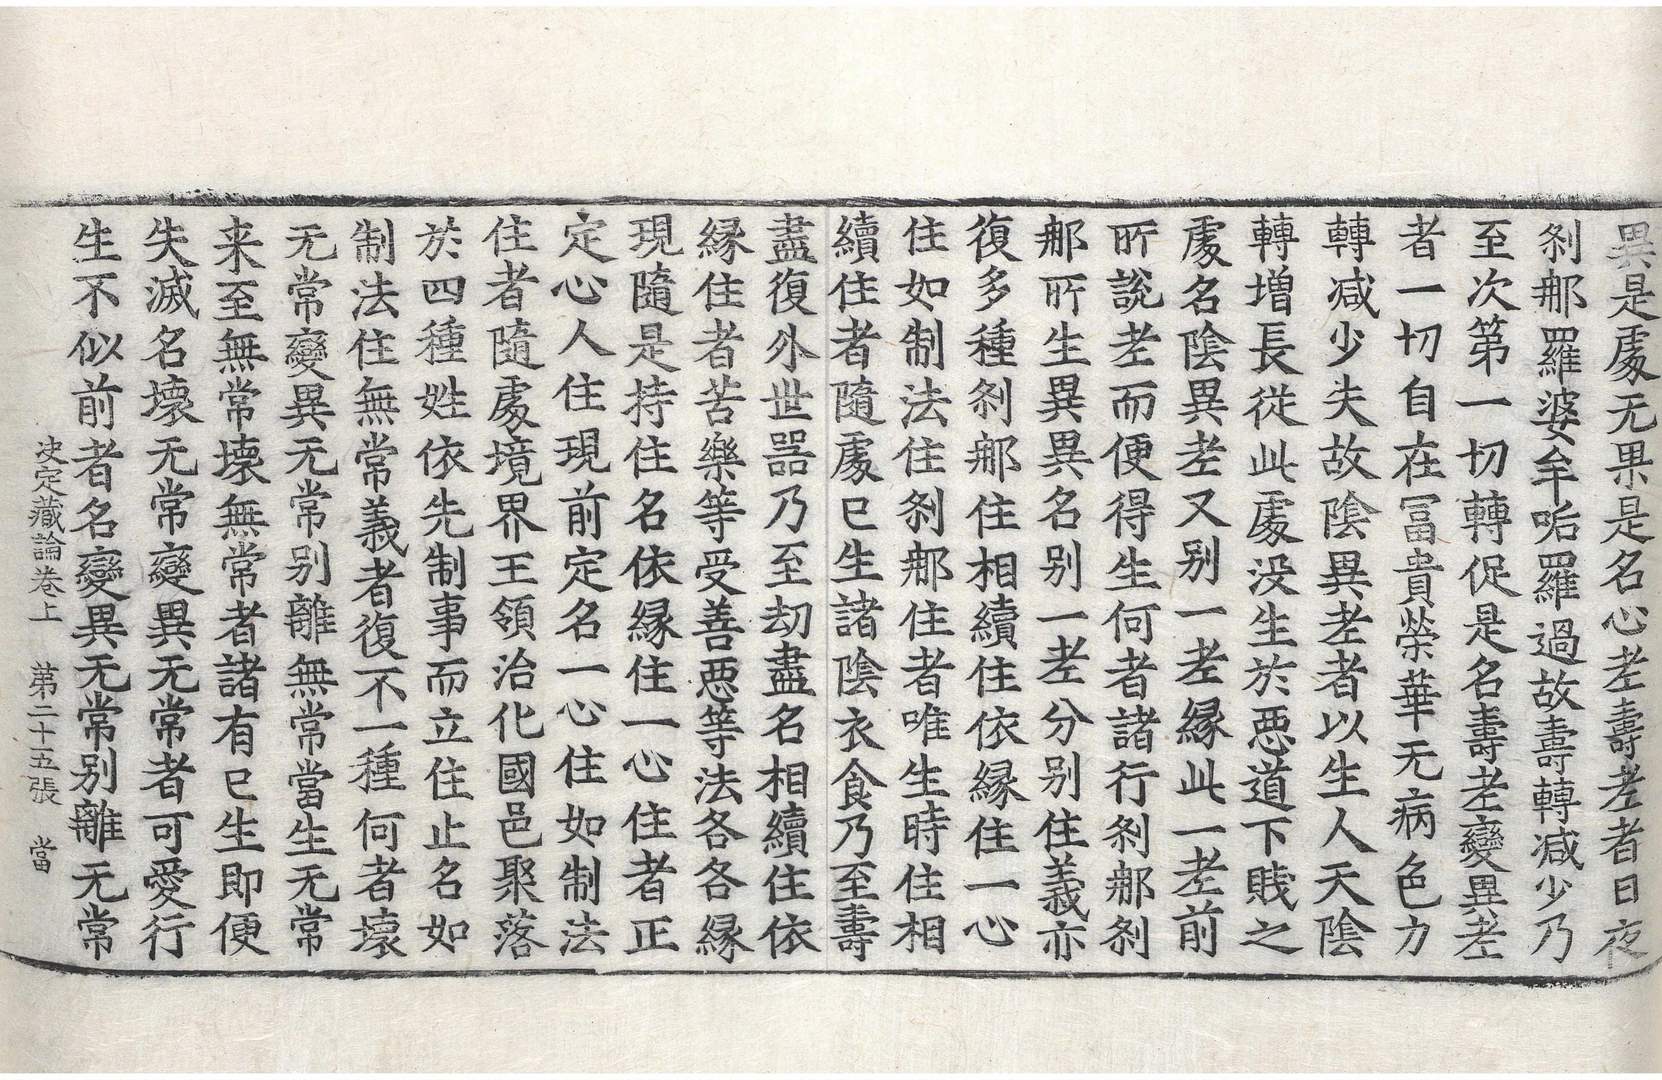 異是處无果是名心老壽老者日夜
刹那羅婆牟呧羅過故壽轉減少乃
至次第一切轉促是名壽老變異老
者一切自在冨貴榮華无病色力
轉减少失故陰異老者以生人天陰
轉增長從此處没生於惡道下賤之
處名陰異異老又別一老縁此一老前
所說老而便得生何者諸行刹那刹
那所生異異名别一老分别住義亦
復多種刹那住相續住依縁住一心
住如制法住刹那住者唯生時住相
續住者隨處已生諸陰衣食乃至壽
盡復外世器乃至劫盡名相續住依
縁住者苦樂等受善惡等法各各縁
現隨是持住名依縁住一心住者正
定心人住現前定名一心住如制法
住者隨處境界王領治化國邑聚落
於四種姓依先制事而立住止名如
制法住無常義者復不一種何者壞
无常變異无常别離無常當生无常
来至無常壞無常者諸有已生即便
失滅名壞无常變異无常者可愛行
生不似前者名變異无常别離无常
決定藏論卷上　第二十五張　當